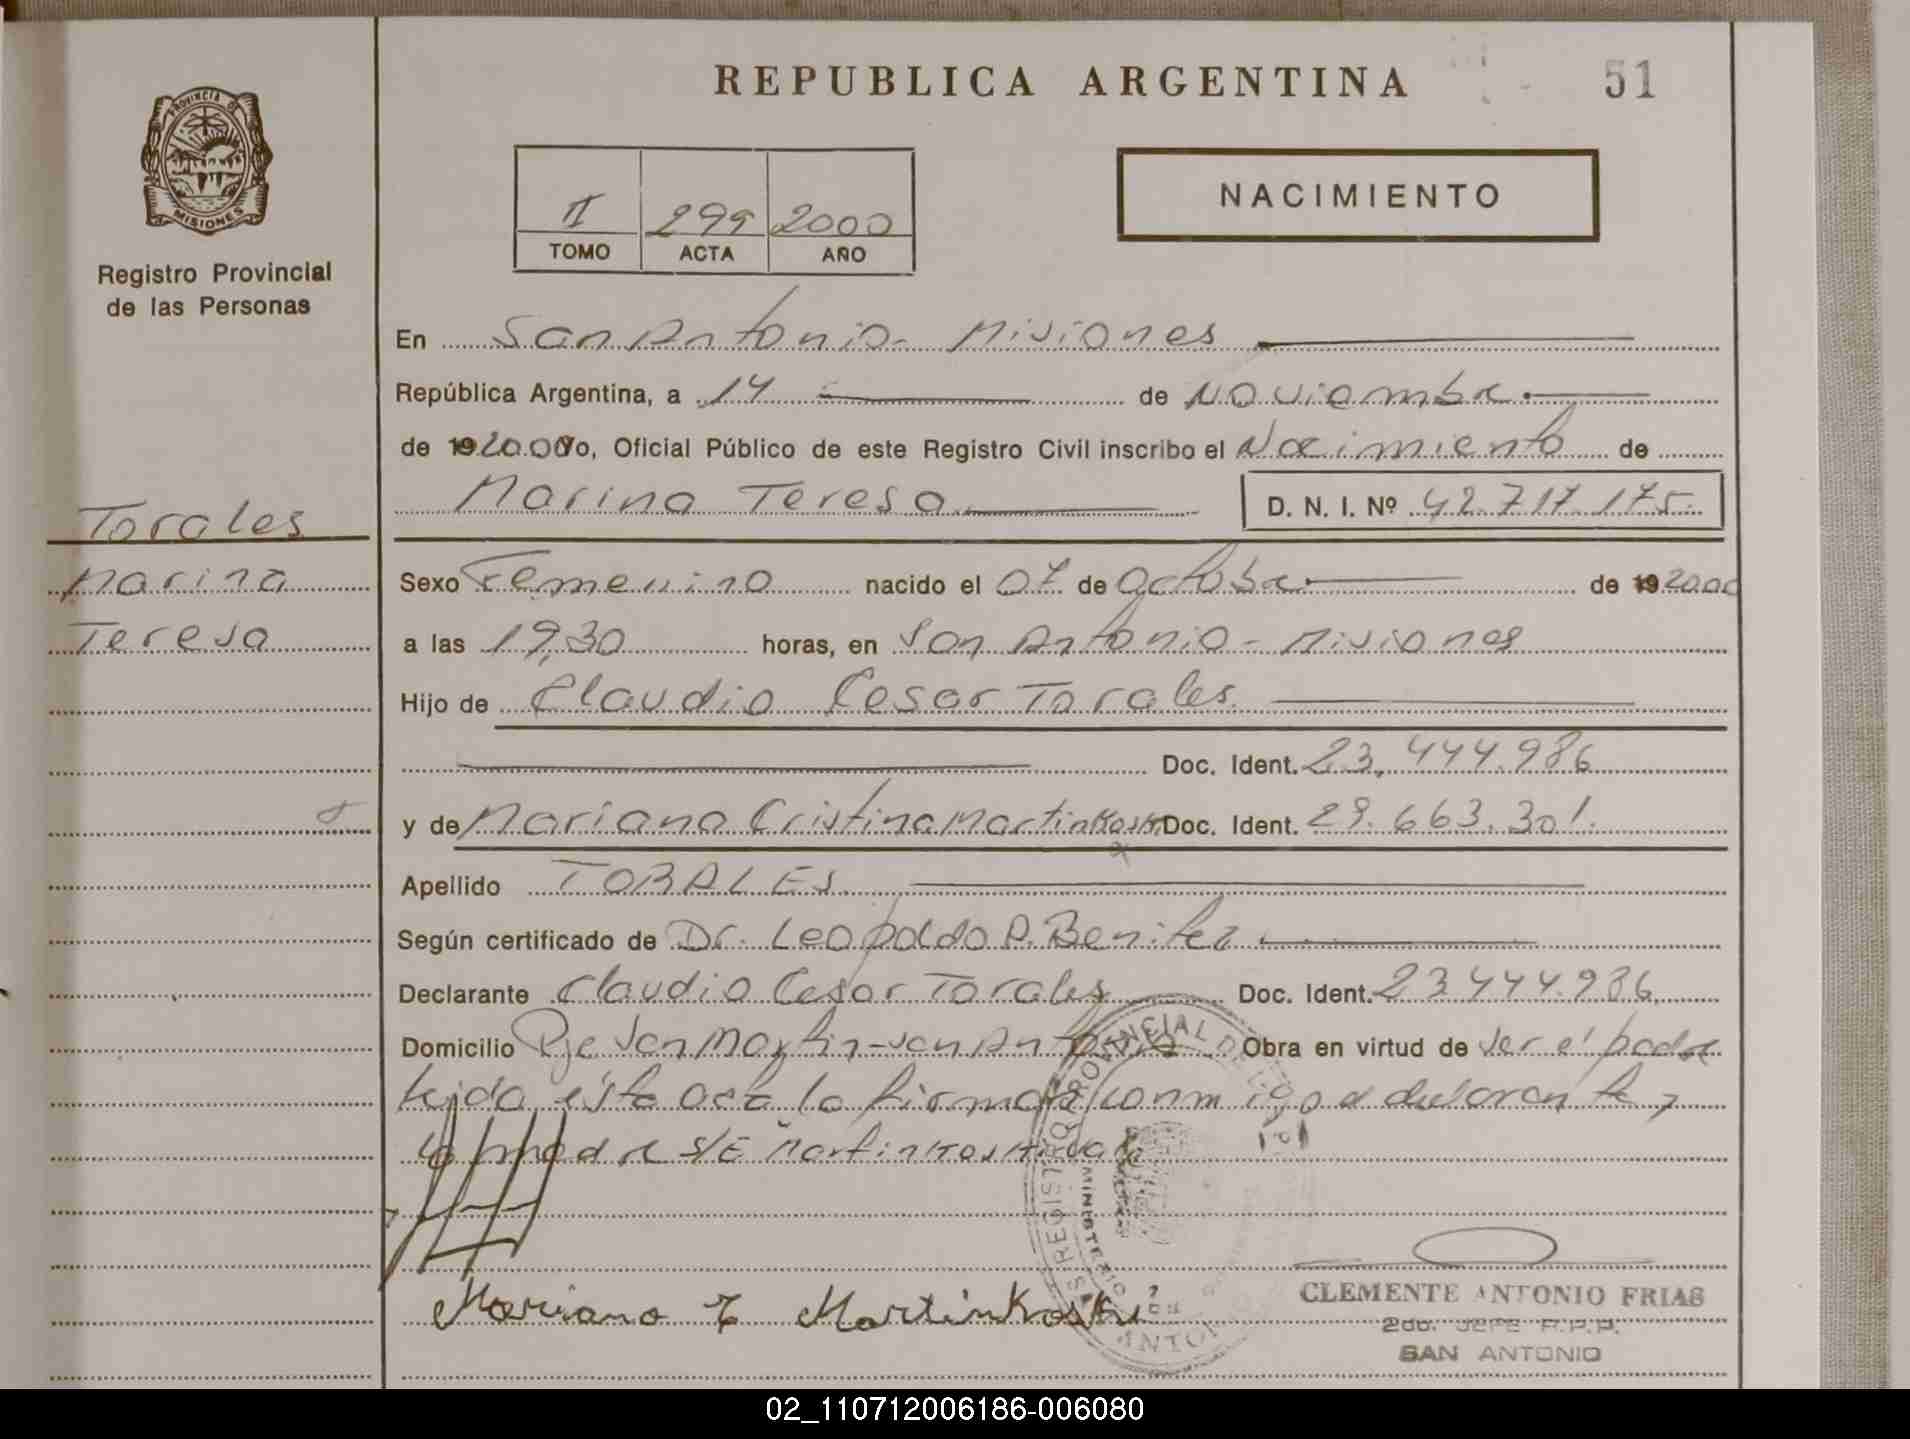 REPUBLICA ARGENTINA
51
PROVINCIA DE
MISIONES
Registro Provincial
de las Personas
NACIMIENTO
II 299 2000
TOMO ACTA AÑO
En San Antonio - Misiones
República Argentina, a 14 de Noviembre
de 19 2000 Yo, Oficial Público de este Registro Civil inscribo el Nacimiento de
Marina Teresa D. N. I. Nº 42.717.175.
Torales
Marina
Teresa
Sexo Femenino nacido el 07 de Octubre de 19 2000
a las 19,30 horas, en San Antonio - Misiones
Hijo de Claudio Cesar Torales
Doc. Ident. 23.444.986
y de Mariana Cristina Martinkoski Doc. Ident. 29.663.301.
Apellido TORALES
Según certificado de Dr. Leopoldo A. Benitez
Declarante Claudio Cesar Torales Doc. Ident. 23444.986
Domicilio Pje San Martin - San Antonio Obra en virtud de ser el padre
leida ésta acta la firma conmigo el declarante y
la madre S/E Martinkoski vale
REGISTRO PROVINCIAL DE
MINISTERIO
CLEMENTE ANTONIO FRIAS
2do. JEFE R.P.P.
SAN ANTONIO
Mariana C Martinkoski
02_110712006186-006080